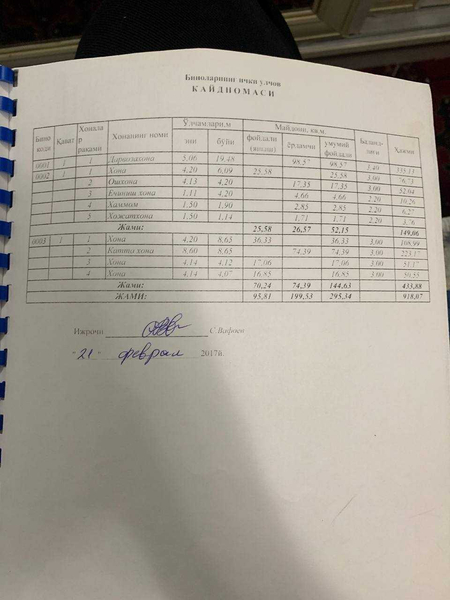 Биноларнинг ички улчов
КАЙДНОМАСИ
Бино коди Қават Хоналар раками Хонанинг номи Ўлчамлари,м Майдони, кв.м. Баланд-лиги Ҳажми
эни бўйи фойдали (яшаш) ёрдамчи умумий фойдали
0001 1 Дарвозахона 5,06 19,48 98,57 98,57 3,40 335,13
0002 1 1 Хона 4,20 6,09 25,58 25,58 3,00 76,73
2 Ошхона 4,13 4,20 17,35 17,35 3,00 52,04
3 Ечиниш хона 1,11 4,20 4,66 4,66 2,20 10,26
4 Хаммом 1,50 1,90 2,85 2,85 2,20 6,27
5 Хожатхона 1,50 1,14 1,71 1,71 2,20 3,76
Жами: 25,58 26,57 52,15 149,06
0003 1 1 Хона 4,20 8,65 36,33 36,33 3,00 108,99
2 Катта хона 8,60 8,65 74,39 74,39 3,00 223,17
3 Хона 4,14 4,12 17,06 17,06 3,00 51,17
4 Хона 4,14 4,07 16,85 16,85 3,00 50,55
Жами: 70,24 74,39 144,63 433,88
ЖАМИ: 95,81 199,53 295,34 918,07
Ижрочи С.Вафоев
"21" феврал 2017й.